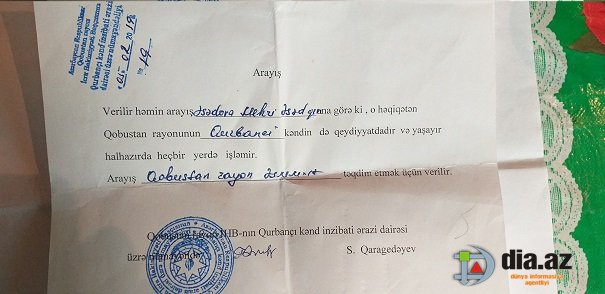 Azərbaycan Respublikası
Qobustan rayon
İcra Hakimiyyəti Başçısının
Qurbançı kənd inzibati ərazi
dairəsi üzrə nümayəndəliyi
02 2019
№ 19
Arayış
Verilir həmin arayış Əsədova Mehri Əsəd qızına görə ki , o həqiqətən
Qobustan rayonunun Qurbançı kəndin də qeydiyyatdadır və yaşayır
halhazırda heçbir yerdə işləmir.
Arayış Qobustan rayon təqdim etmək üçün verilir.
Qobustan İHB-nın Qurbançı kənd inzibati ərazi dairəsi
üzrə S. Qaragedəyev
dia.az
dünya informasiya
agentliyi